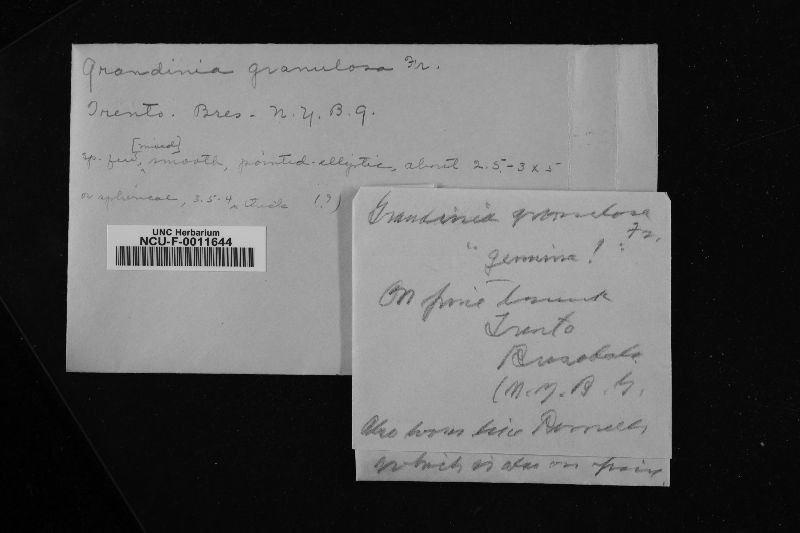 Grandinia granulosa Fr.
Trento. Bres - N.Y.B.G.
[mixed]
sp. few, smooth, pointed-elliptic, about 2.5-3 x 5
or spherical, 3.5-4 thick (?)
UNC Herbarium
NCU-F-0011644
Grandinia granulosa
Fr.
"genuina!"
On pine
Trento
Bresadola
(N.Y.B.G.
Also looks like
which is also on pine,